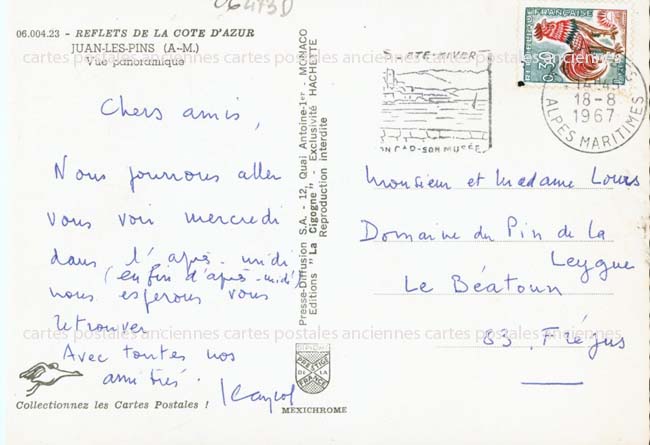 06473D
06.004.23 - REFLETS DE LA COTE D'AZUR
JUAN-LES-PINS (A.-M.)
Vue panoramique
Chers amis,
Nous pourrons aller
vous voir mercredi
dans l'après-midi
(en fin d'après-midi)
nous espérons vous
retrouver
Avec toutes nos
amitiés.
Collectionnez les Cartes Postales !
Presse-Diffusion S.A. - 12, Quai Antoine-1er - MONACO
Editions "La Cigogne" - Exclusivité HACHETTE
Reproduction interdite
PRESTIGE
DE LA
FRANCE
MEXICHROME
REPUBLIQUE FRANÇAISE
0,30
ETE-HIVER
SON MUSÉE
14H45
18-8
1967
ALPES MARITIMES
Monsieur et Madame Louis
Domaine du Pin de la
Leygue
Le Béatoun
83. Fréjus
cartes postales anciennes cartes postales anciennes cartes postales anciennes
cartes postales anciennes cartes postales anciennes cartes postales anciennes